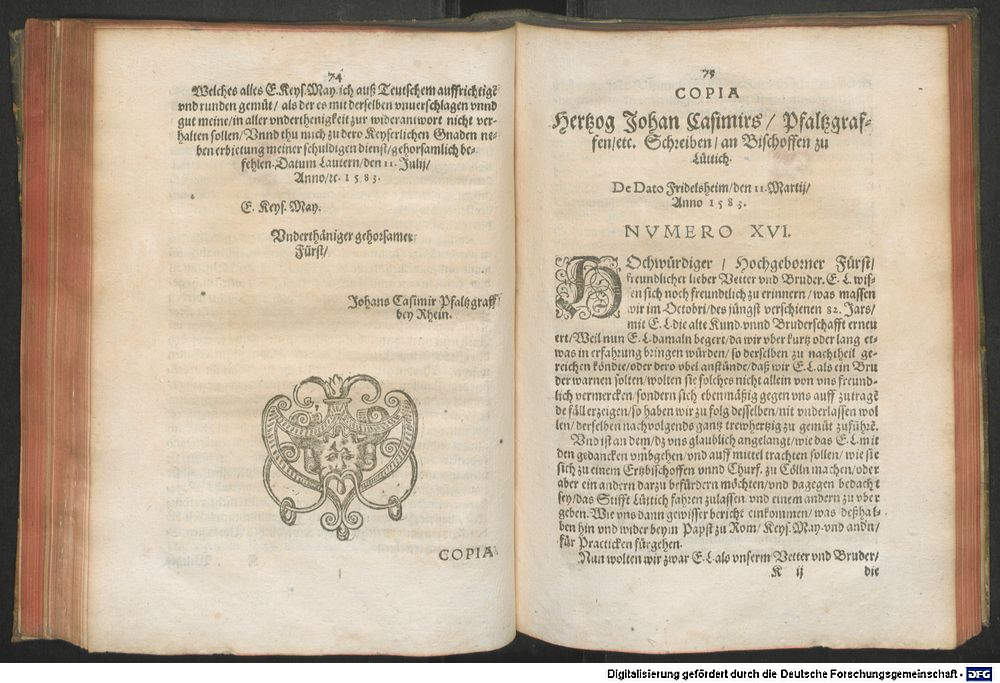 74
Welches alles E. Keys. May. ich auß Teutschem auffrichtigē
vnd runden gemüt / als der es mit derselben vnuerschlagen vnnd
gut meine / in aller vnderthenigkeit zur widerantwort nicht ver-
halten sollen / Vnnd thu mich zu dero Keyserlichen Gnaden ne-
ben erbietung meiner schuldigen dienst / gehorsamlich be-
fehlen. Datum Lautern / den 11. Julij /
Anno / ꝛc. 1583.
E. Keys. May.
Vnderthäniger gehorsamer
Fürst /
Johans Casimir Pfaltzgraff
bey Rhein.
COPIA
75
COPIA
Hertzog Johan Casimirs / Pfaltzgraf-
fen / etc. Schreiben / an Bischoffen zu
Lüttich.
De Dato Fridelsheim / den 11. Martij /
Anno 1583.
NVMERO XVI.
HOchwürdiger / Hochgeborner Fürst /
freundlicher lieber Vetter vnd Bruder. E. L. wis-
sen sich noch freundtlich zu erinnern / was massen
wir im Octobri / des jüngst verschienen 82. Jars /
mit E. L. die alte Kund. vnnd Bruderschafft erneu
ert / Weil nun E. L. damaln begert / da wir vber kurtz oder lang et-
was in erfahrung bringen würden / so derselben zu nachtheil ge-
reichen köndte / oder dero vbel anstünde / daß wir E. L. als ein Bru
der warnen solten / wolten sie solches nicht allein von vns freund-
lich vermercken / sondern sich ebenmäßig gegen vns auff zutragē
de fäll erzeigen / so haben wir zu folg desselben / nit vnderlassen wol
len / derselben nachvolgends gantz trewhertzig zu gemüt zuführē.
Vnd ist an dem / dz vns glaublich angelangt / wie das E. L. mit
den gedancken vmbgehen / vnd auff mittel trachten sollen / wie sie
sich zu einem Ertzbischoffen vnnd Churf. zu Cölln machen / oder
aber ein andern darzu befürdern möchten / vnd dagegen bedacht
sey / das Stifft Lüttich fahren zulassen vnd einem andern zu vber
geben. Wie vns dann gewisser bericht einkommen / was deßhal-
ben hin vnd wider beym Papst zu Rom / Keys. May. vnd andn /
für Practicken fürgehen.
Nun wolten wir zwar E. L. als vnserm Vetter vnd Bruder /
K ij
die
Digitalisierung gefördert durch die Deutsche Forschungsgemeinschaft - DFG